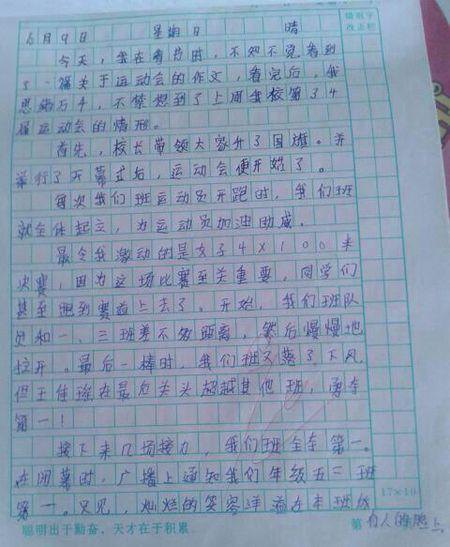 错别字
改正栏
6月9日 星期日 晴
今天，我在看书时，不知不觉看到
了一篇关于运动会的作文，看完后，我
思绪万千，不禁想到了上周我校第34
届运动会的情形。
首先，校长带领大家升了国旗。并
举行了开幕式后，运动会便开始了。
每次我们班运动员开跑时，我们班
就全体起立，为运动员加油助威。
最令我激动的是女子4×100米
决赛，因为这场比赛至关重要，同学们
甚至跑到赛道上去了。开始，我们班队
员和一、三班差不多距离，然后慢慢地
拉开。最后一棒时，我们班又落了下风
但王佳 在最后关头超越其他班，勇夺
第一！
接下来几场接力，我们班全夺第一。
在闭幕时，广播上通知我们年级五三班
第一。只见，灿烂的笑容洋溢在本班级
17×16
聪明出于勤奋，天才在于积累 第 有人的脸上